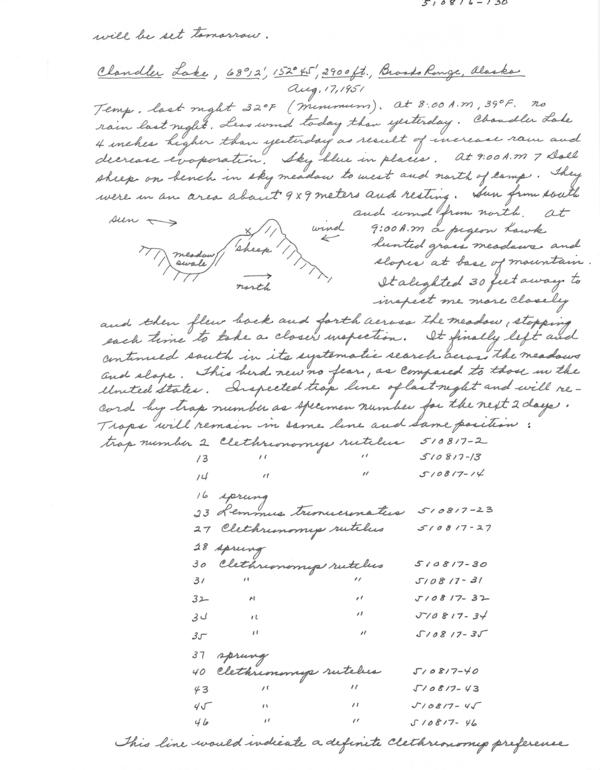 510816-130
will be set tomorrow.
Chandler Lake, 68°12', 152°45', 2900 ft., Brooks Range, Alaska
Aug. 17, 1951
Temp. last night 32°F (Minimum). At 8:00 A.M, 39°F. no
rain last night. Less wind today than yesterday. Chandler Lake
4 inches higher than yesterday as result of increase rain and
decrease evaporation. Sky blue in places. At 9:00 A.M 7 Dall
sheep on bench in sky meadow to west and north of camp. They
were in an area about 9x9 meters and resting. Sun from south
and wind from north. At
9:00 A.M a pigeon hawk
hunted grass meadows and
slopes at base of mountain.
It alighted 30 feet away to
inspect me more closely
sun
wind
x
sheep
meadow
swale
north
and then flew back and forth across the meadow, stopping
each time to take a closer inspection. It finally left and
continued south in its systematic search across the meadows
and slope. This bird new no fear, as compared to those in the
United States. Inspected trap line of last night and will re-
cord by trap number as specimen number for the next 2 days.
Traps will remain in same line and same position:
trap number 2 Clethrionomys rutilus 510817-2
13 " " 510817-13
14 " " 510817-14
16 sprung
23 Lemmus trimucronatus 510817-23
27 Clethrionomys rutilus 510817-27
28 sprung
30 Clethrionomys rutilus 510817-30
31 " " 510817-31
32 " " 510817-32
34 " " 510817-34
35 " " 510817-35
37 sprung
40 Clethrionomys rutilus 510817-40
43 " " 510817-43
45 " " 510817-45
46 " " 510817-46
This line would indicate a definite Clethrionomys preference